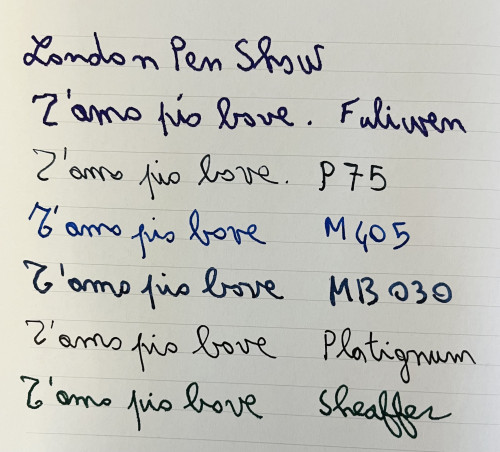 London Pen Show
T'amo pio bove. Fuliwen
T'amo pio bove. P75
T'amo pio bove M405
T'amo pio bove MB 030
T'amo pio bove Platignum
T'amo pio bove Sheaffer